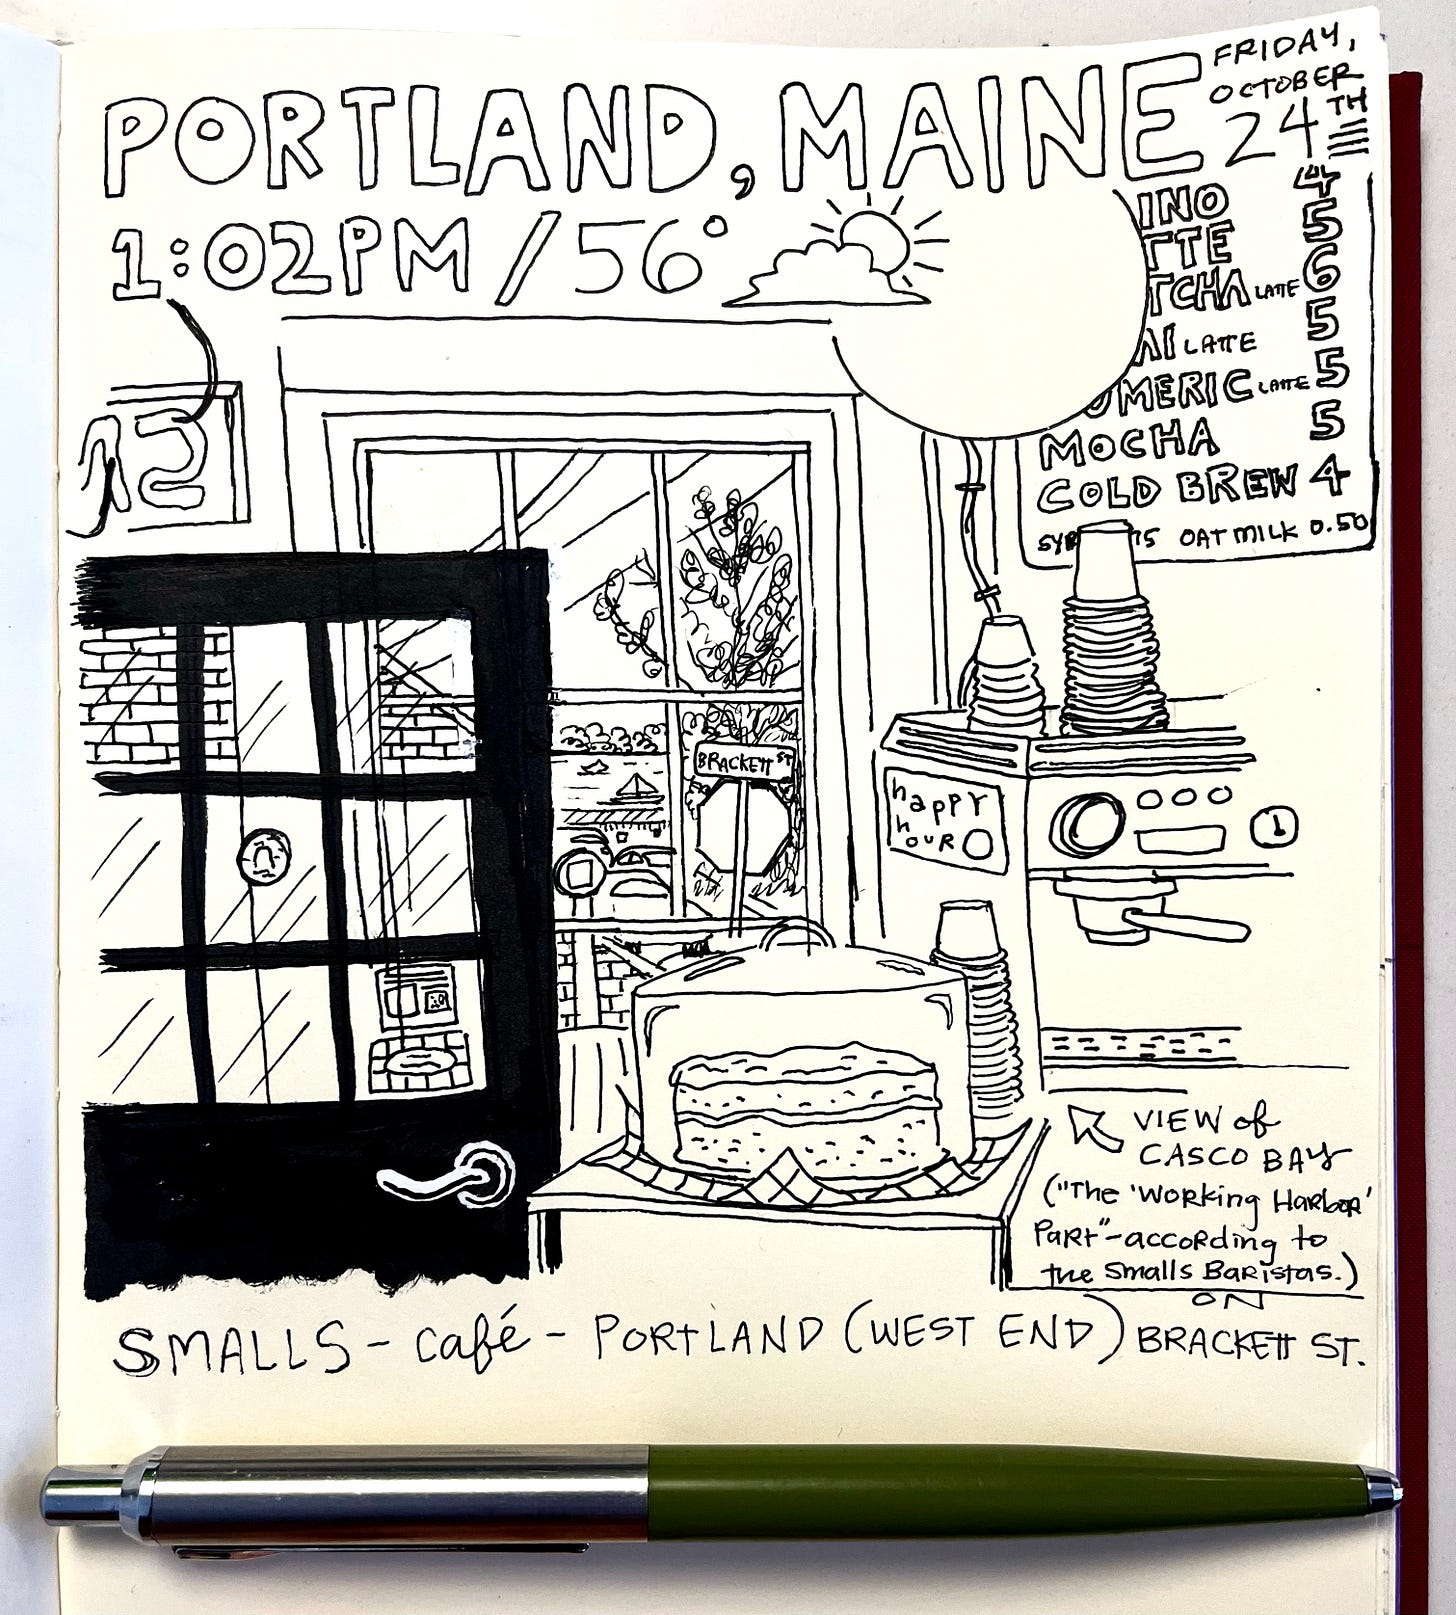 PORTLAND, MAINE
FRIDAY,
OCTOBER
24TH
1:02PM / 56°
4
INO 5
TTE 6
TCHA LATTE 5
AI LATTE 5
UMERIC LATTE 5
MOCHA 4
COLD BREW
OAT MILK 0.50
12
BRACKETT ST
happy
hour
1
VIEW of
CASCO BAY
("The 'Working Harbor'
Part" - according to
the Smalls Baristas.)
SMALLS - café - PORTLAND (WEST END) ON BRACKETT ST.